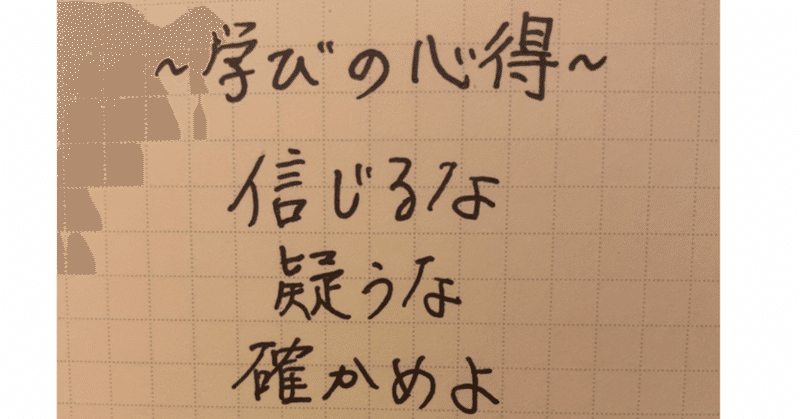 ~学びの心得~
信じるな
疑うな
確かめよ